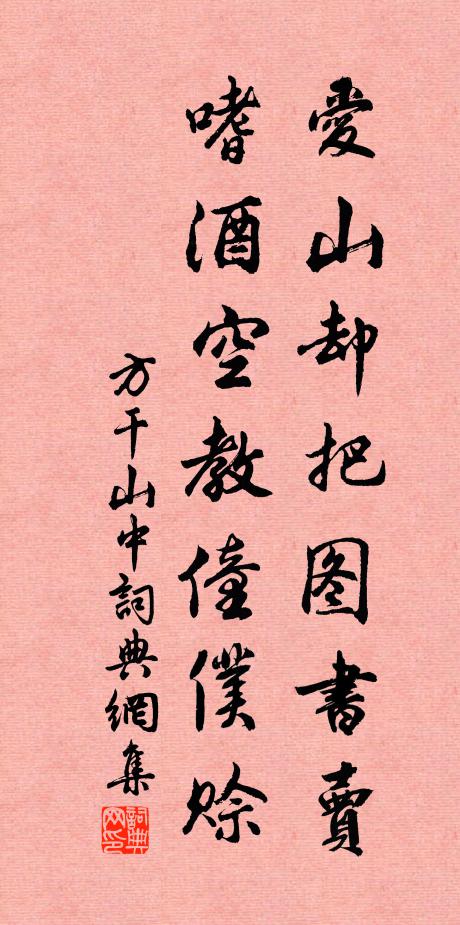 愛山却把图書賣
嗜酒空教僮僕賒
方干山中詞典網集
詞典网印